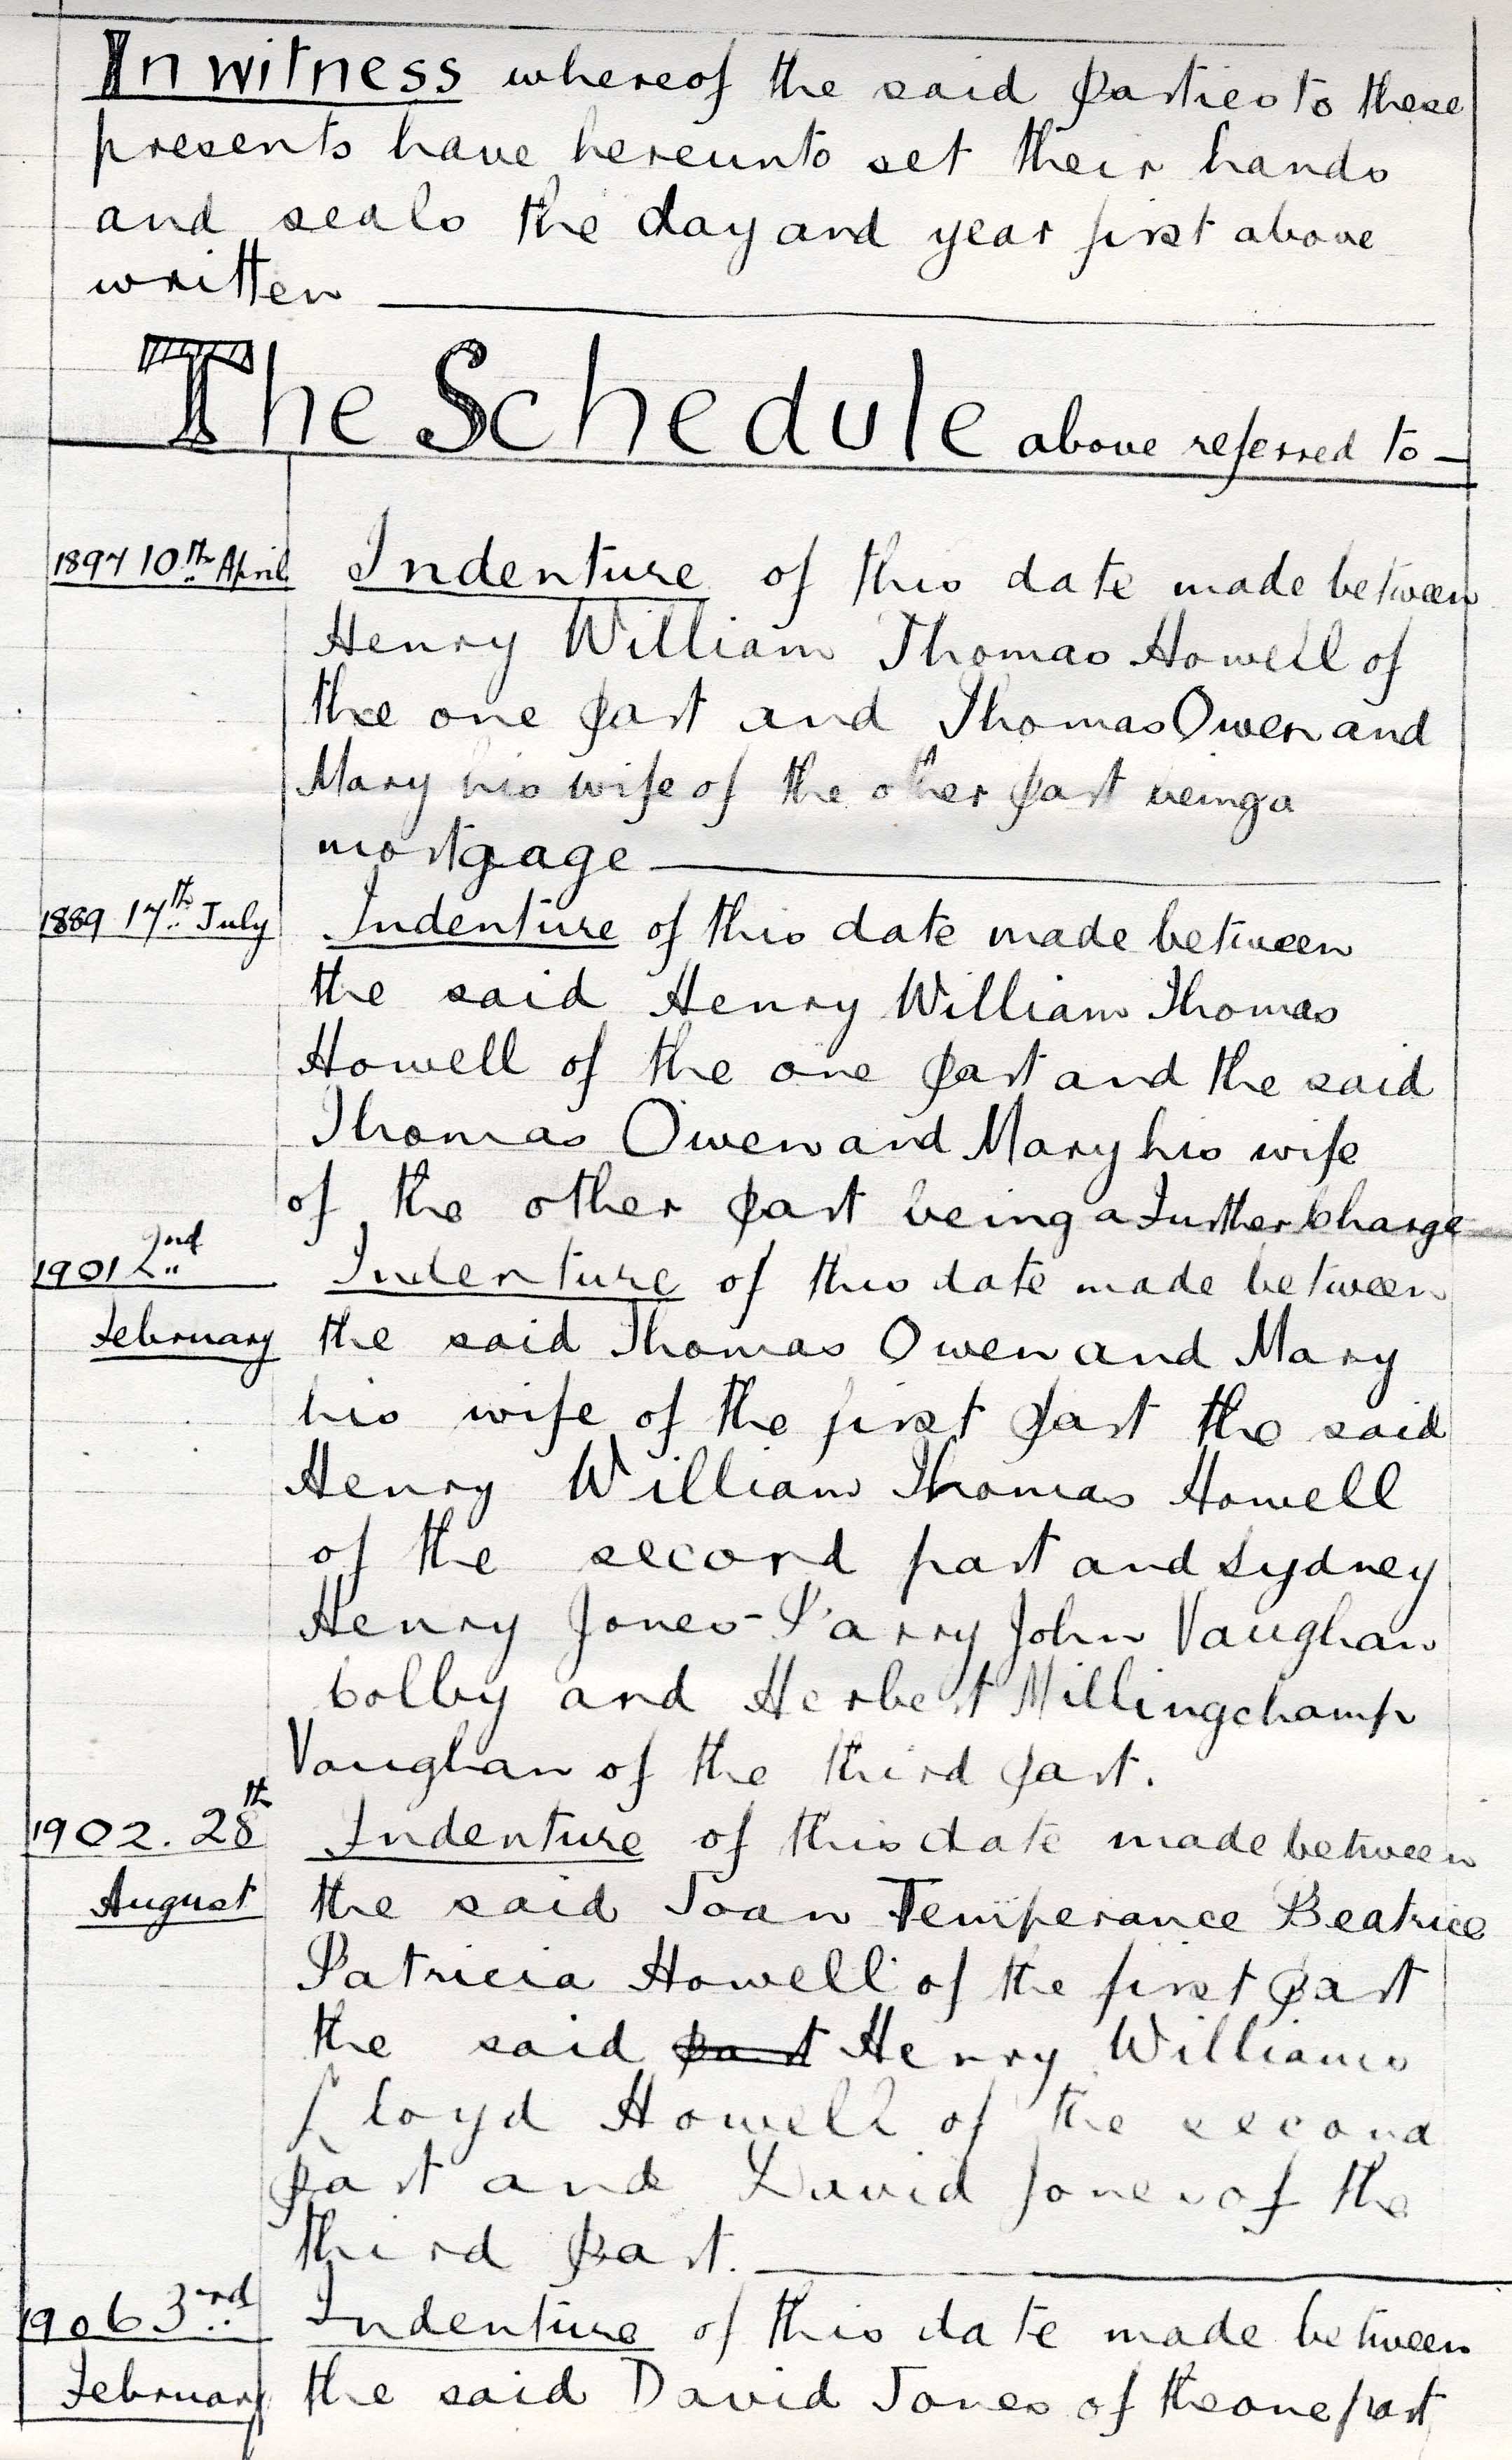 In witness whereof the said parties to these
presents have hereunto set their hands
and seals the day and year first above
written
The Schedule above referred to —
1897 10th April Indenture of this date made between
Henry William Thomas Howell of
the one part and Thomas Owen and
Mary his wife of the other part being a
mortgage
1889 17th July Indenture of this date made between
the said Henry William Thomas
Howell of the one part and the said
Thomas Owen and Mary his wife
of the other part being a Further Charge
1901 2nd Indenture of this date made between
February the said Thomas Owen and Mary
his wife of the first part the said
Henry William Thomas Howell
of the second part and Sydney
Henry Jones-Parry John Vaughan
Colby and Herbert Millingchamp
Vaughan of the third part.
1902. 28th Indenture of this date made between
August the said Joan Temperance Beatrice
Patricia Howell of the first part
the said part Henry Williams
Lloyd Howell of the second
part and David Jones of the
third part.
1906 3rd Indenture of this date made between
February the said David Jones of the one part